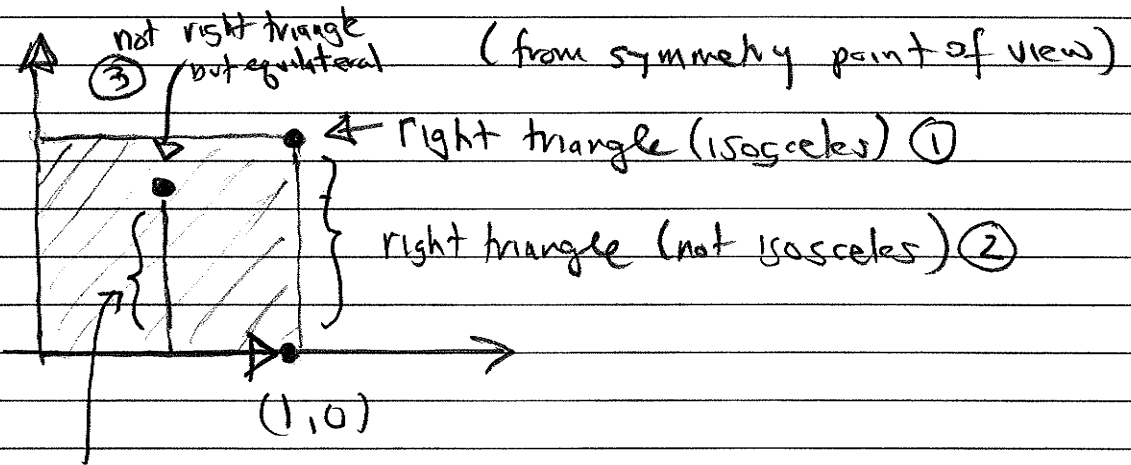 not right triangle
③ but equilateral
(from symmetry point of view)
right triangle (isosceles) ①
right triangle (not isosceles) ②
(1,0)